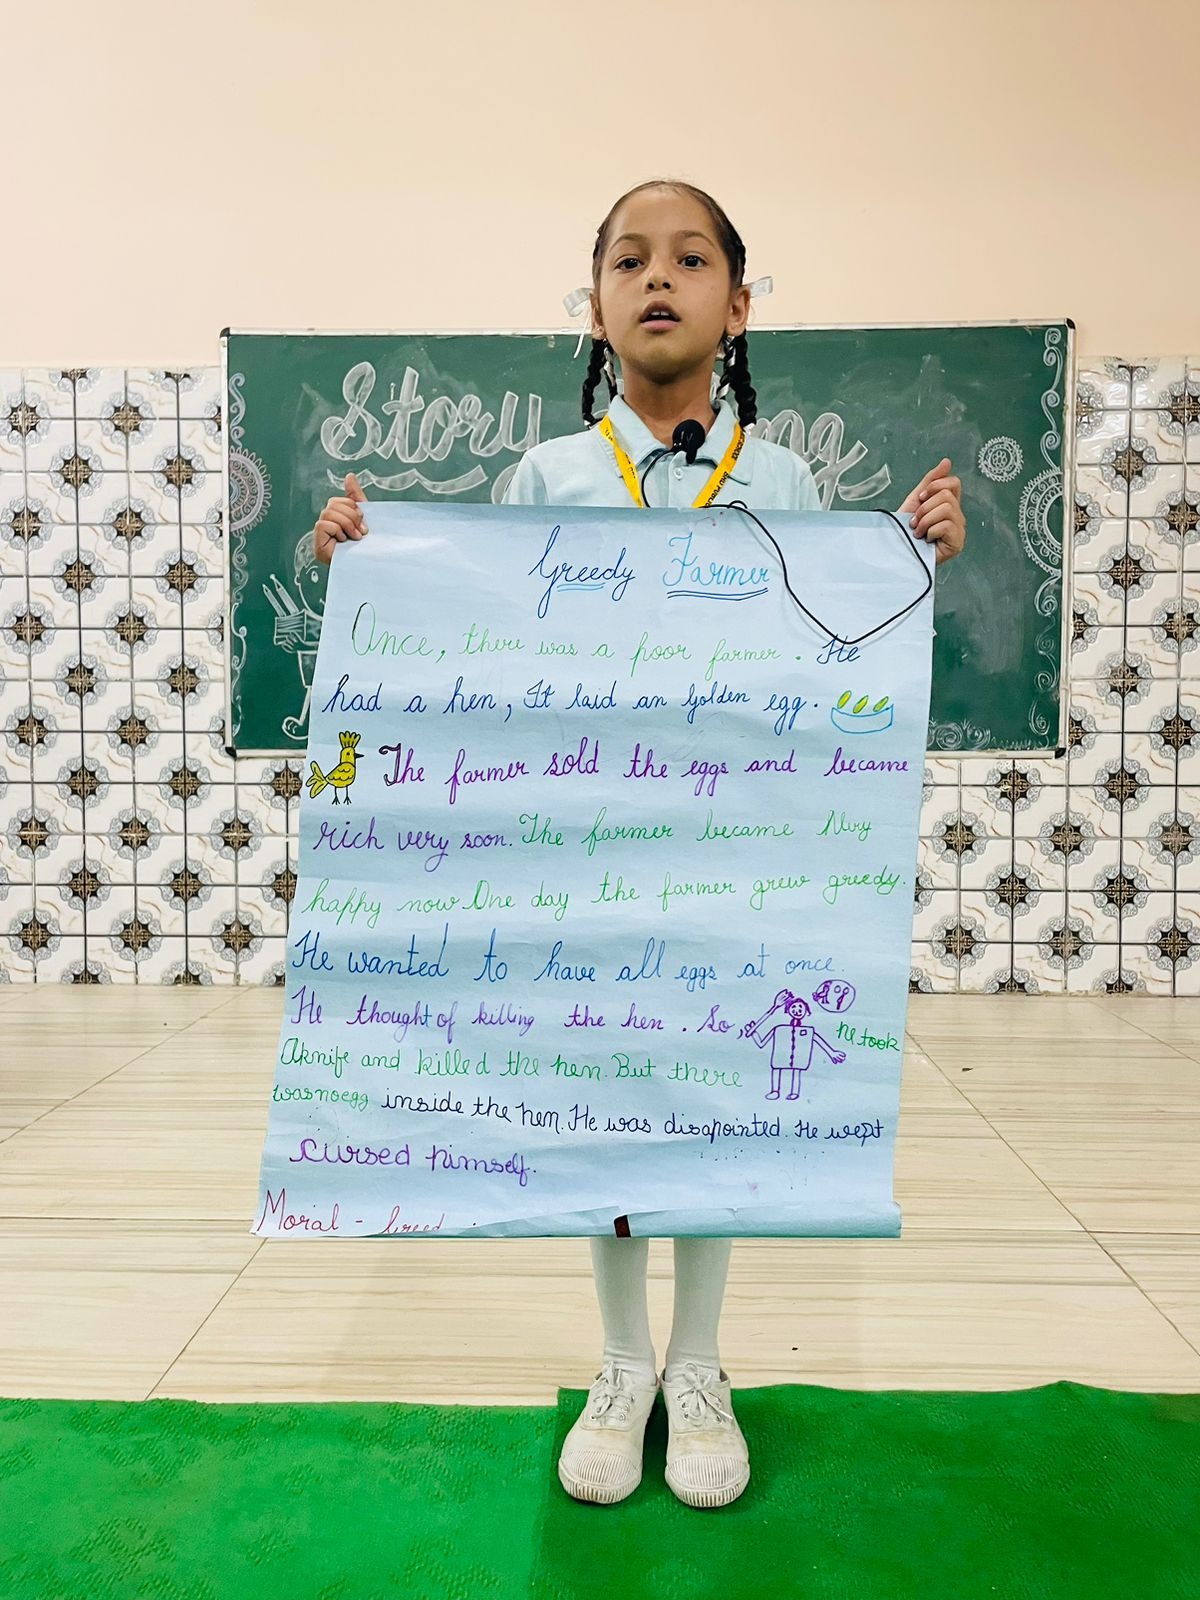 Story
Greedy Farmer
Once, there was a poor farmer. He
had a hen, It laid an golden egg.
The farmer sold the eggs and became
rich very soon. The farmer became Very
happy now One day the farmer grew greedy.
He wanted to have all eggs at once.
He thought of killing the hen. So, he took
A knife and killed the hen. But there
was no egg inside the hen. He was disapointed. He wept
cursed himself.
Moral - Greed